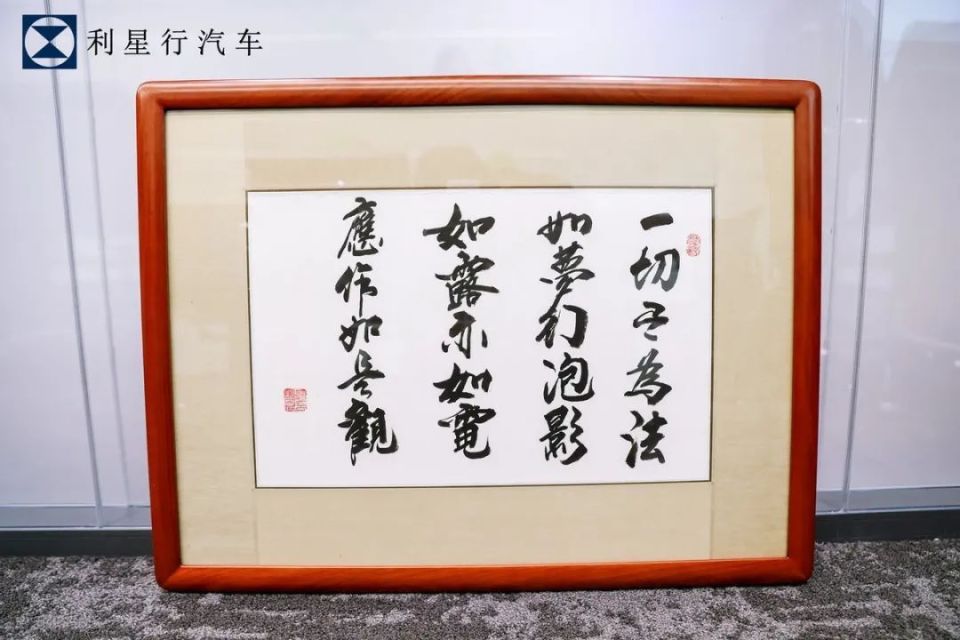 利星行汽车
一切有為法
如夢幻泡影
如露亦如電
應作如是觀